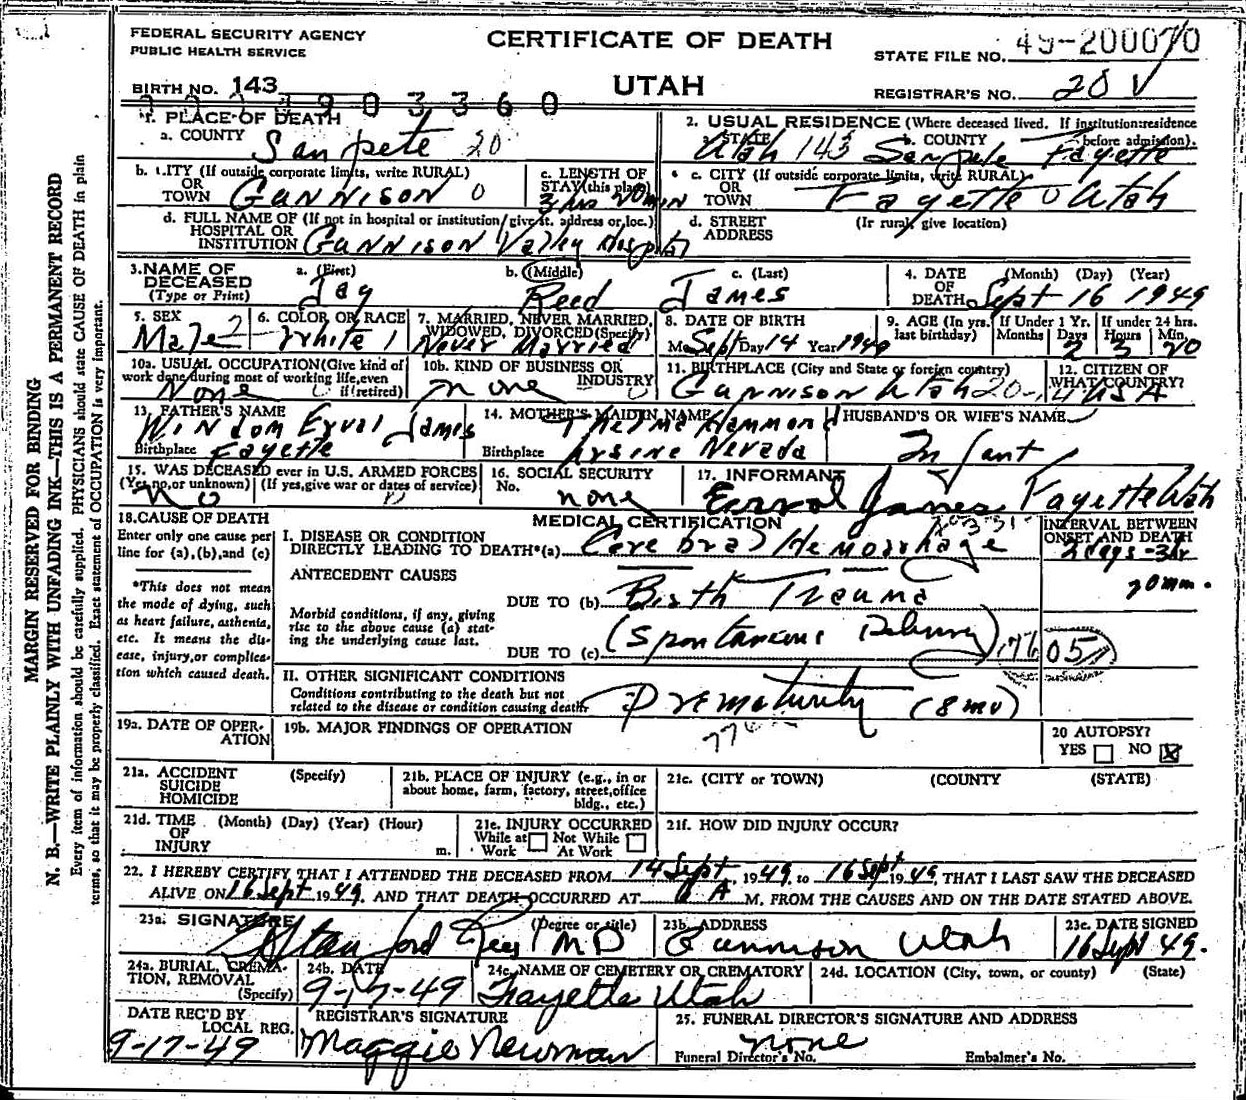 FEDERAL SECURITY AGENCY
PUBLIC HEALTH SERVICE
CERTIFICATE OF DEATH
STATE FILE NO. 49-200070
BIRTH NO. 143
UTAH
REGISTRAR'S NO. 20 V
903360
1. PLACE OF DEATH
a. COUNTY Sanpete 20
2. USUAL RESIDENCE (Where deceased lived. If institution:residence before admission).
a. STATE Utah 143 b. COUNTY Sanpete Fayette
b. CITY (If outside corporate limits, write RURAL) OR TOWN Gunnison 0
c. LENGTH OF STAY (this place) 3 hrs 20 min
c. CITY (If outside corporate limits, write RURAL) OR TOWN Fayette 0 Utah
d. FULL NAME OF (If not in hospital or institution, give st. address or loc.) HOSPITAL OR INSTITUTION Gunnison Valley Hospital
d. STREET ADDRESS (If rural, give location)
3. NAME OF DECEASED (Type or Print)
a. (First) Jay b. (Middle) Reed c. (Last) James
4. DATE OF DEATH (Month) (Day) (Year) Sept 16 1949
5. SEX Male 2
6. COLOR OR RACE White 1
7. MARRIED, NEVER MARRIED, WIDOWED, DIVORCED (Specify) Never Married
8. DATE OF BIRTH Mo Sept Day 14 Year 1949
9. AGE (In yrs. last birthday) If Under 1 Yr. Months Days 2 If under 24 hrs. Hours 3 Min. 20
10a. USUAL OCCUPATION (Give kind of work done during most of working life, even if retired) None
10b. KIND OF BUSINESS OR INDUSTRY none
11. BIRTHPLACE (City and State or foreign country) Gunnison Utah 20
12. CITIZEN OF WHAT COUNTRY? USA
13. FATHER'S NAME Windom Erval James
Birthplace Fayette
14. MOTHER'S MAIDEN NAME Thelma Hammond
Birthplace Nevada
HUSBAND'S OR WIFE'S NAME Infant
15. WAS DECEASED ever in U.S. ARMED FORCES (Yes, no, or unknown) (If yes, give war or dates of service) No
16. SOCIAL SECURITY No. none
17. INFORMANT Erval James Fayette Utah
18. CAUSE OF DEATH
Enter only one cause per line for (a), (b), and (c)
MEDICAL CERTIFICATION
INTERVAL BETWEEN ONSET AND DEATH
I. DISEASE OR CONDITION DIRECTLY LEADING TO DEATH* (a) Cerebral Hemorrhage 2 days-3hr
20 min.
*This does not mean the mode of dying, such as heart failure, asthenia, etc. It means the disease, injury, or complication which caused death.
ANTECEDENT CAUSES
Morbid conditions, if any, giving rise to the above cause (a) stating the underlying cause last.
DUE TO (b) Birth Trauma
DUE TO (c) (Spontaneous Delivery)
II. OTHER SIGNIFICANT CONDITIONS
Conditions contributing to the death but not related to the disease or condition causing death. Prematurity (8 mo)
19a. DATE OF OPERATION
19b. MAJOR FINDINGS OF OPERATION
20 AUTOPSY? YES NO X
21a. ACCIDENT SUICIDE HOMICIDE (Specify)
21b. PLACE OF INJURY (e.g., in or about home, farm, factory, street, office bldg., etc.)
21c. (CITY or TOWN) (COUNTY) (STATE)
21d. TIME OF INJURY (Month) (Day) (Year) (Hour) m.
21e. INJURY OCCURRED While at Work Not While At Work
21f. HOW DID INJURY OCCUR?
22. I HEREBY CERTIFY THAT I ATTENDED THE DECEASED FROM 14 Sept, 1949, to 16 Sept 1949, THAT I LAST SAW THE DECEASED
ALIVE ON 16 Sept 1949, AND THAT DEATH OCCURRED AT A M. FROM THE CAUSES AND ON THE DATE STATED ABOVE.
23a. SIGNATURE (Degree or title) Stanford Rees MD
23b. ADDRESS Gunnison Utah
23c. DATE SIGNED 16 Sept 49.
24a. BURIAL, CREMATION, REMOVAL (Specify)
24b. DATE 9-17-49
24c. NAME OF CEMETERY OR CREMATORY Fayette Utah
24d. LOCATION (City, town, or county) (State)
DATE REC'D BY LOCAL REG. 9-17-49
REGISTRAR'S SIGNATURE Maggie Newman
25. FUNERAL DIRECTOR'S SIGNATURE AND ADDRESS none
Funeral Director's No. Embalmer's No.
MARGIN RESERVED FOR BINDING
N. B.—WRITE PLAINLY WITH UNFADING INK—THIS IS A PERMANENT RECORD
Every item of information should be carefully supplied. PHYSICIANS should state CAUSE OF DEATH in plain
terms, so that it may be properly classified. Exact statement of OCCUPATION is very important.